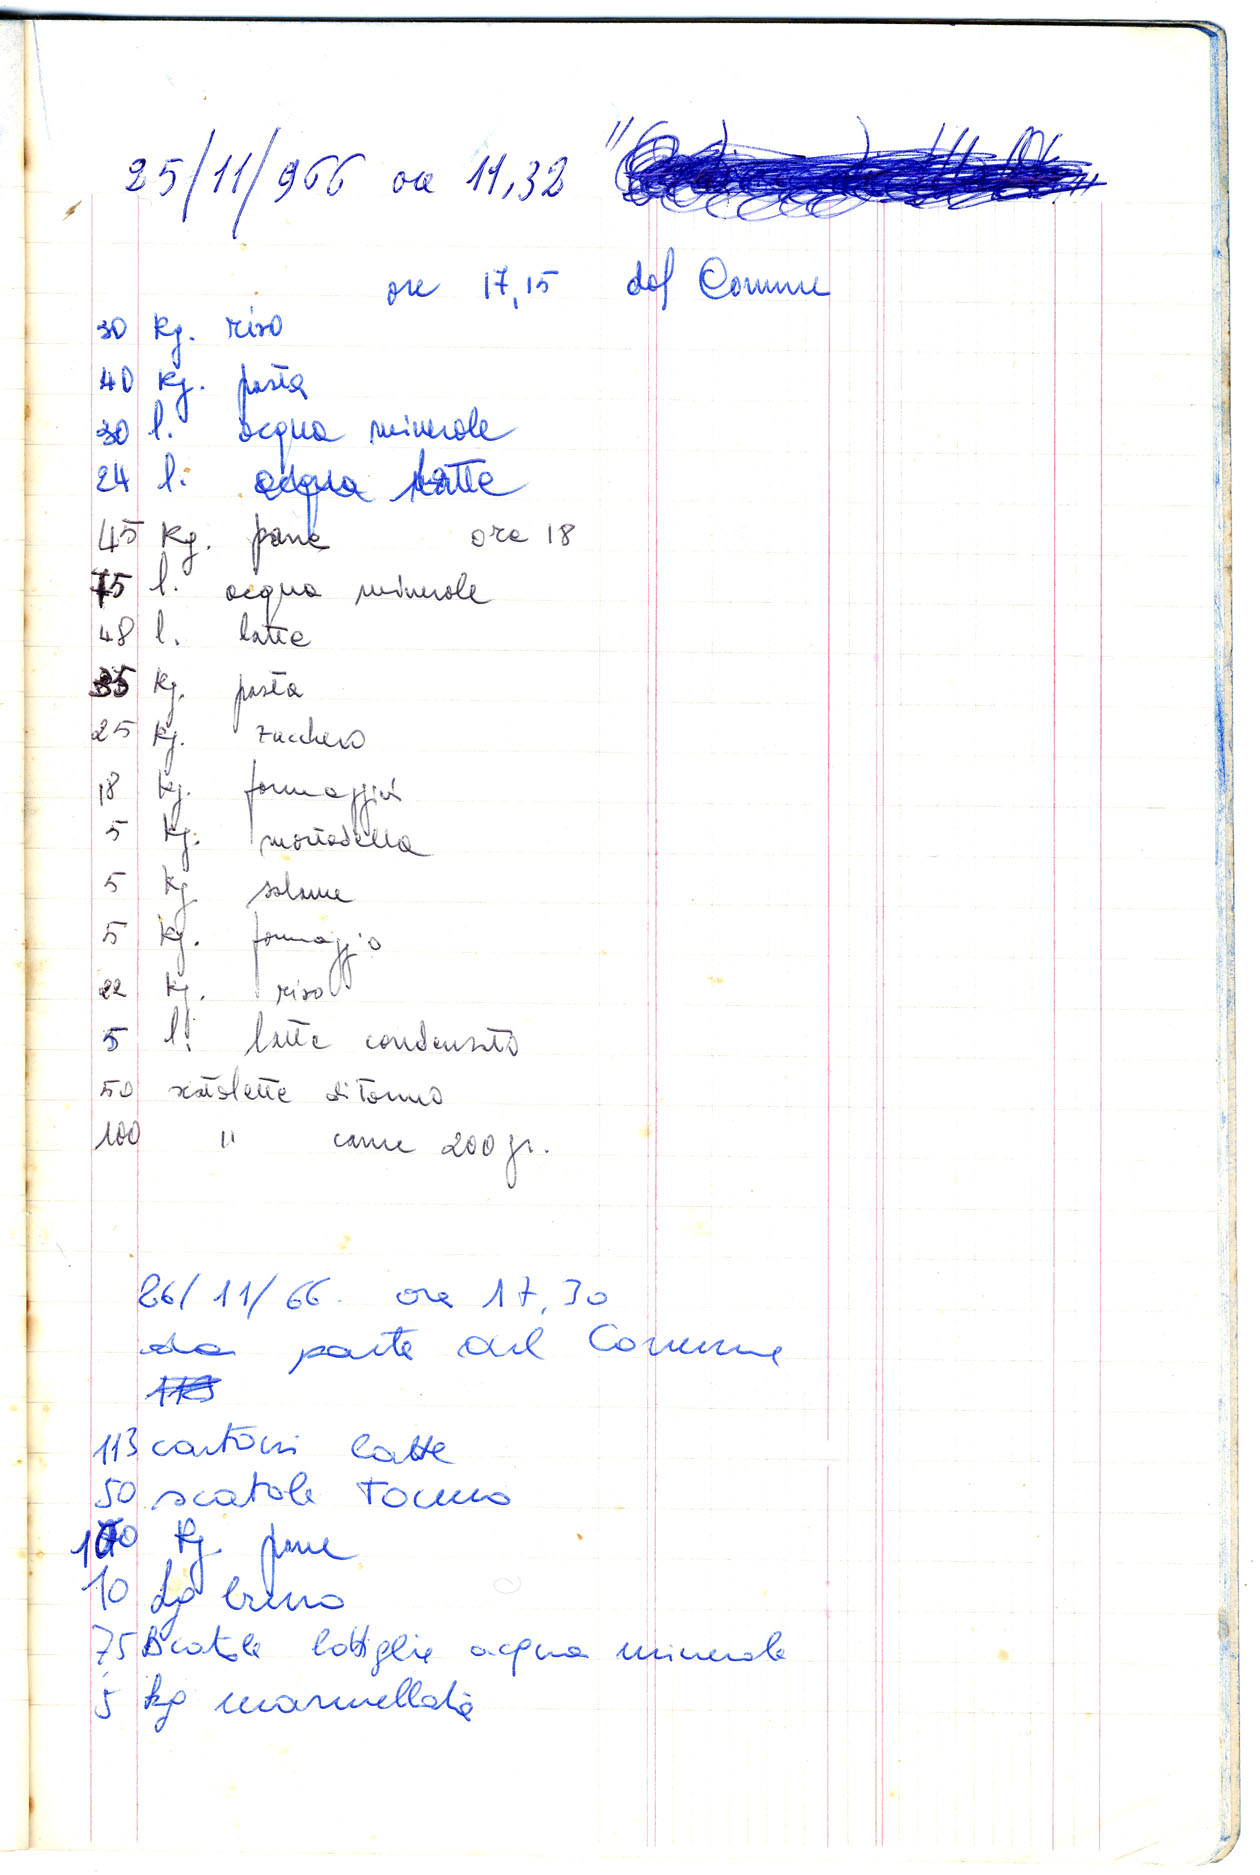 25/11/966 ore 11,32
ore 17,15 dal Comune
30 kg. riso
40 kg. pasta
30 l. acqua minerale
24 l. acqua latte
45 kg. pane ore 18
75 l. acqua minerale
48 l. latte
35 kg. pasta
25 kg. zucchero
18 kg. formaggini
5 kg. mortadella
5 kg. salame
5 kg. formaggio
22 kg. riso
5 l. latte condensato
50 scatolette di tonno
100 " carne 200 gr.
26/11/66. ore 17,30
da parte del Comune
113
113 cartoni latte
50 scatole Tonno
100 kg. pane
10 kg burro
75 Scatole bottiglie acqua minerale
5 kg marmellata